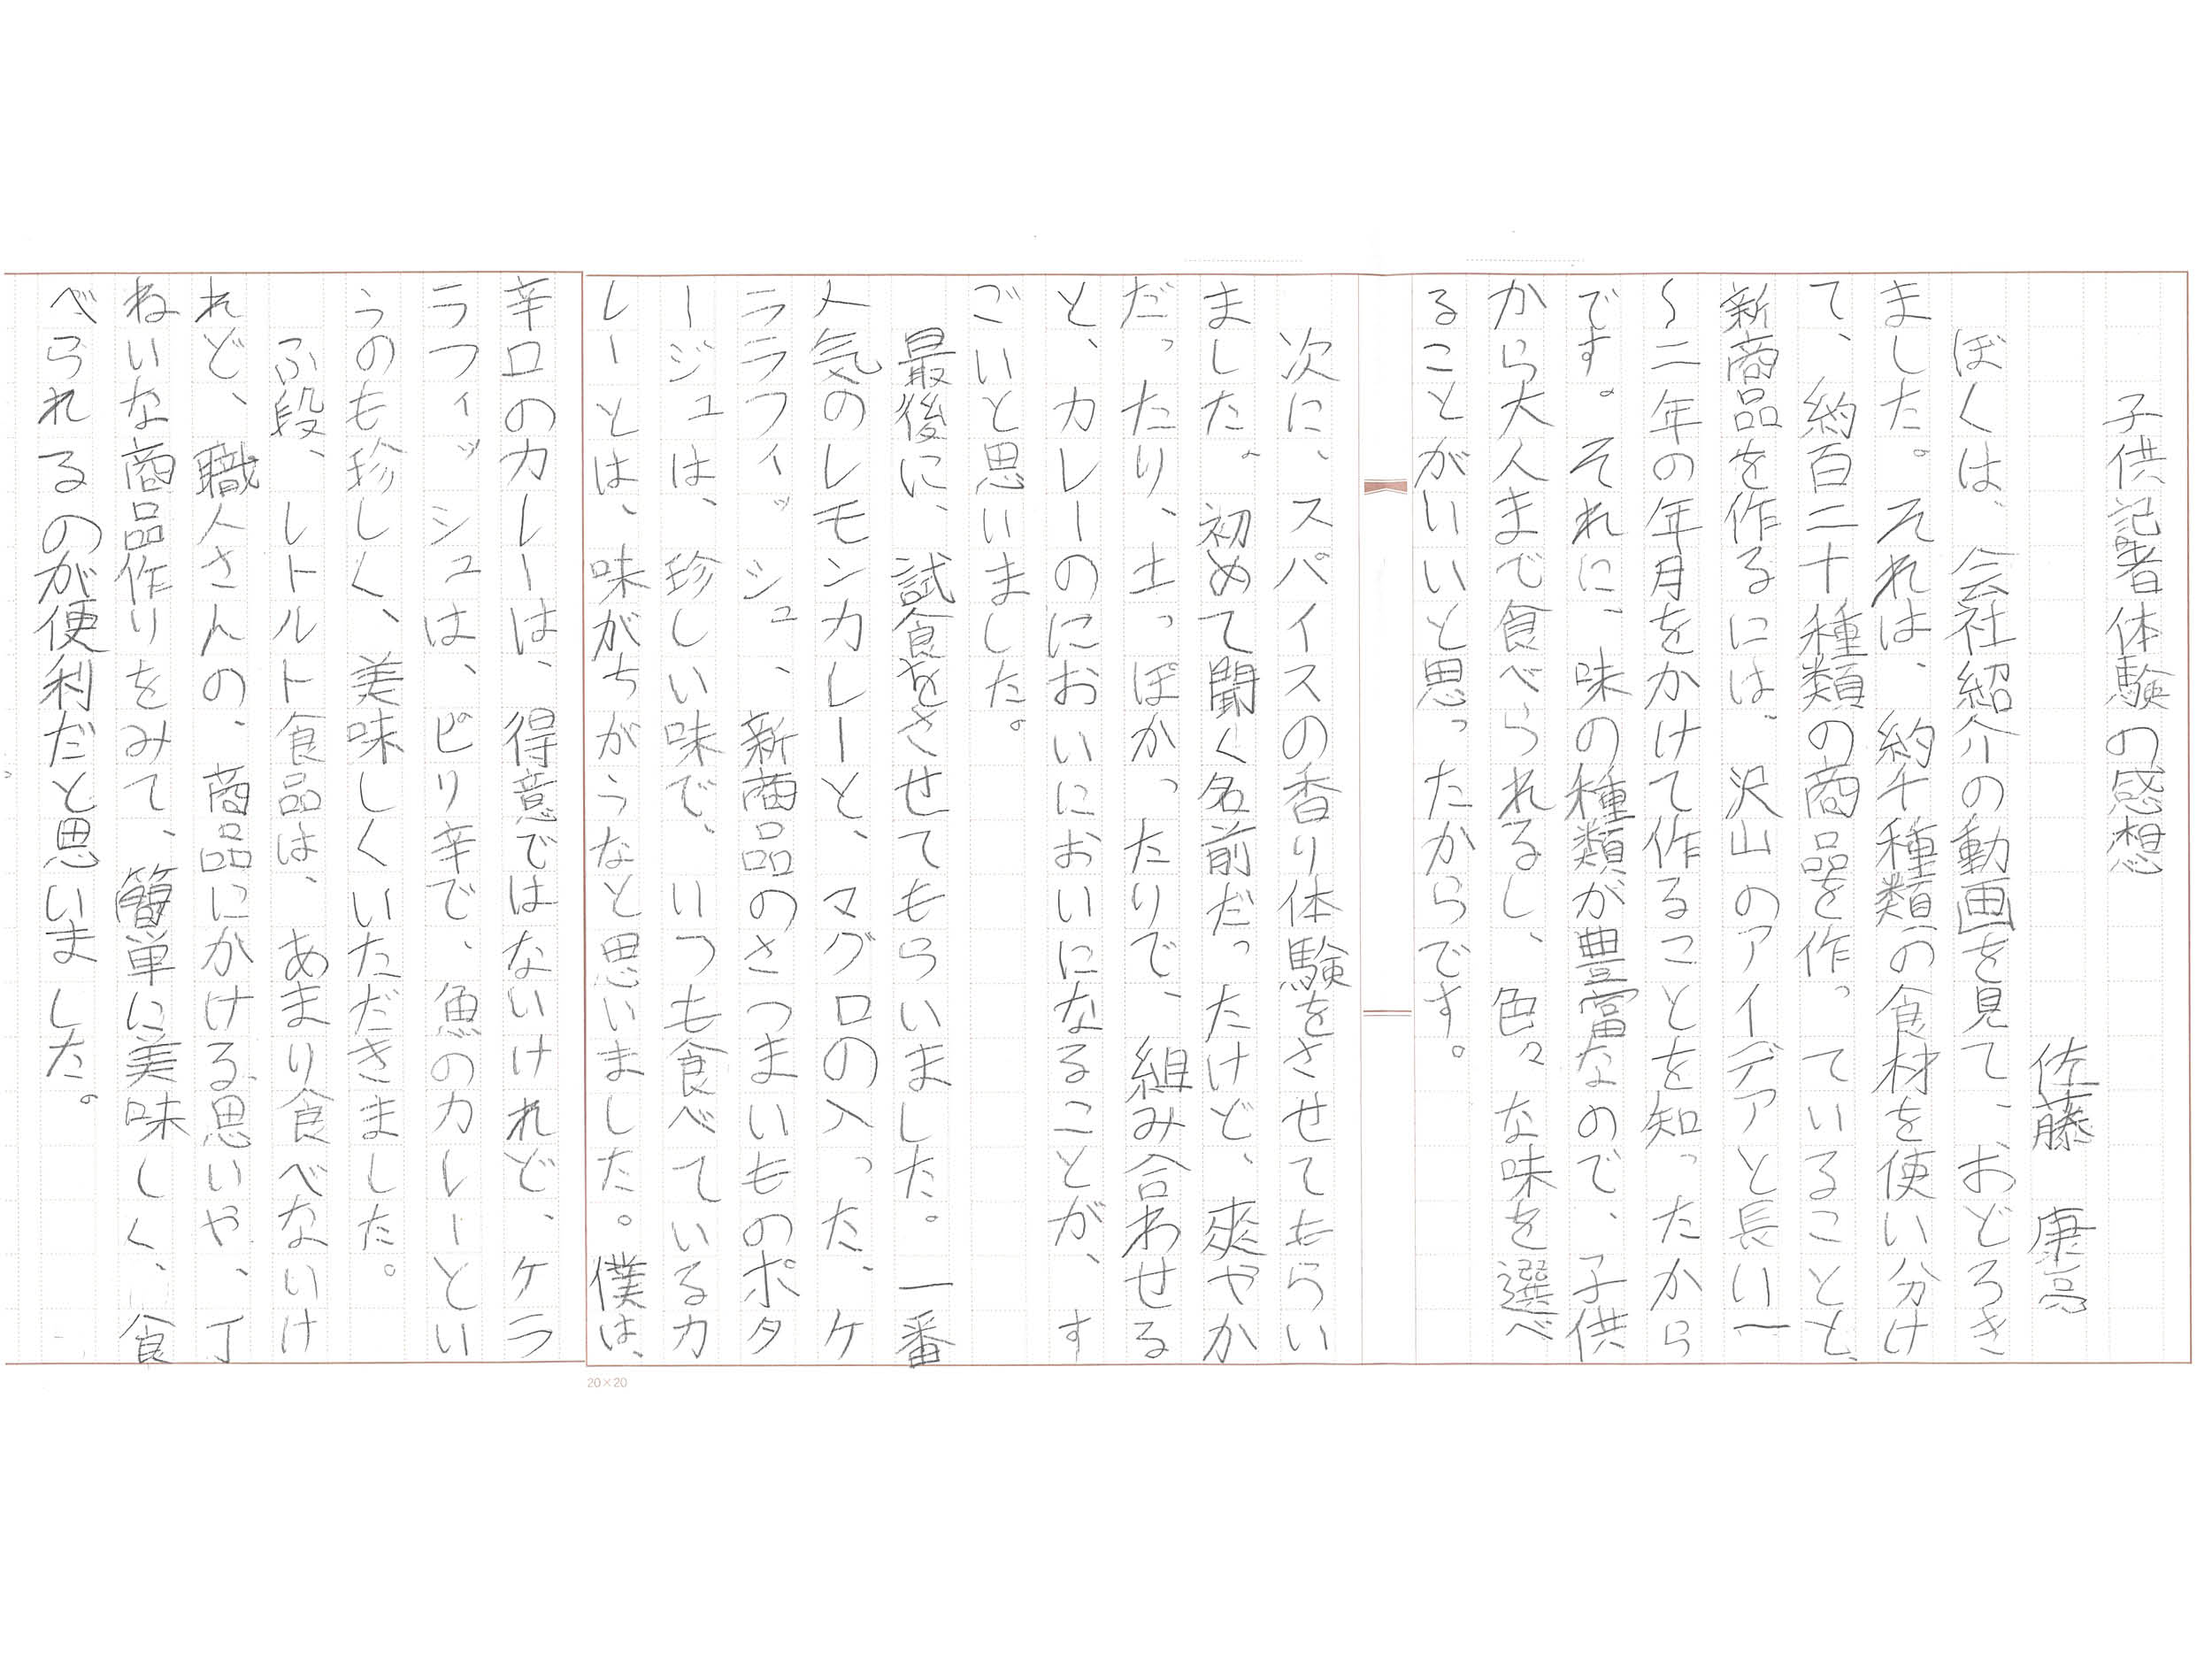 子供記者体験の感想
佐藤 康亮
ぼくは、会社紹介の動画を見て、おどろき
ました。それは、約千種類の食材を使い分け
て、約百二十種類の商品を作っていることと、
新商品を作るには、沢山のアイデアと長い一
〜二年の年月をかけて作ることを知ったから
です。それに、味の種類が豊富なので、子供
から大人まで食べられるし、色々な味を選べ
ることがいいと思ったからです。
次に、スパイスの香り体験をさせてもらい
ました。初めて聞く名前だったけど、爽やか
だったり、土っぽかったりで、組み合わせる
と、カレーのにおいにおいになることが、す
ごいと思いました。
最後に、試食をさせてもらいました。一番
人気のレモンカレーと、マグロの入った、ケ
ララフィッシュ、新商品のさつまいものポタ
ージュは、珍しい味で、いつも食べているカ
レーとは、味がちがうなと思いました。僕は、
辛口のカレーは、得意ではないけれど、ケラ
ラフィッシュは、ピリ辛で、魚のカレーとい
うのも珍しく、美味しくいただきました。
ふ段、レトルト食品は、あまり食べないけ
れど、職人さんの、商品にかける思いや、丁
ねいな商品作りをみて、簡単に美味しく、食
べられるのが便利だと思いました。
20×20